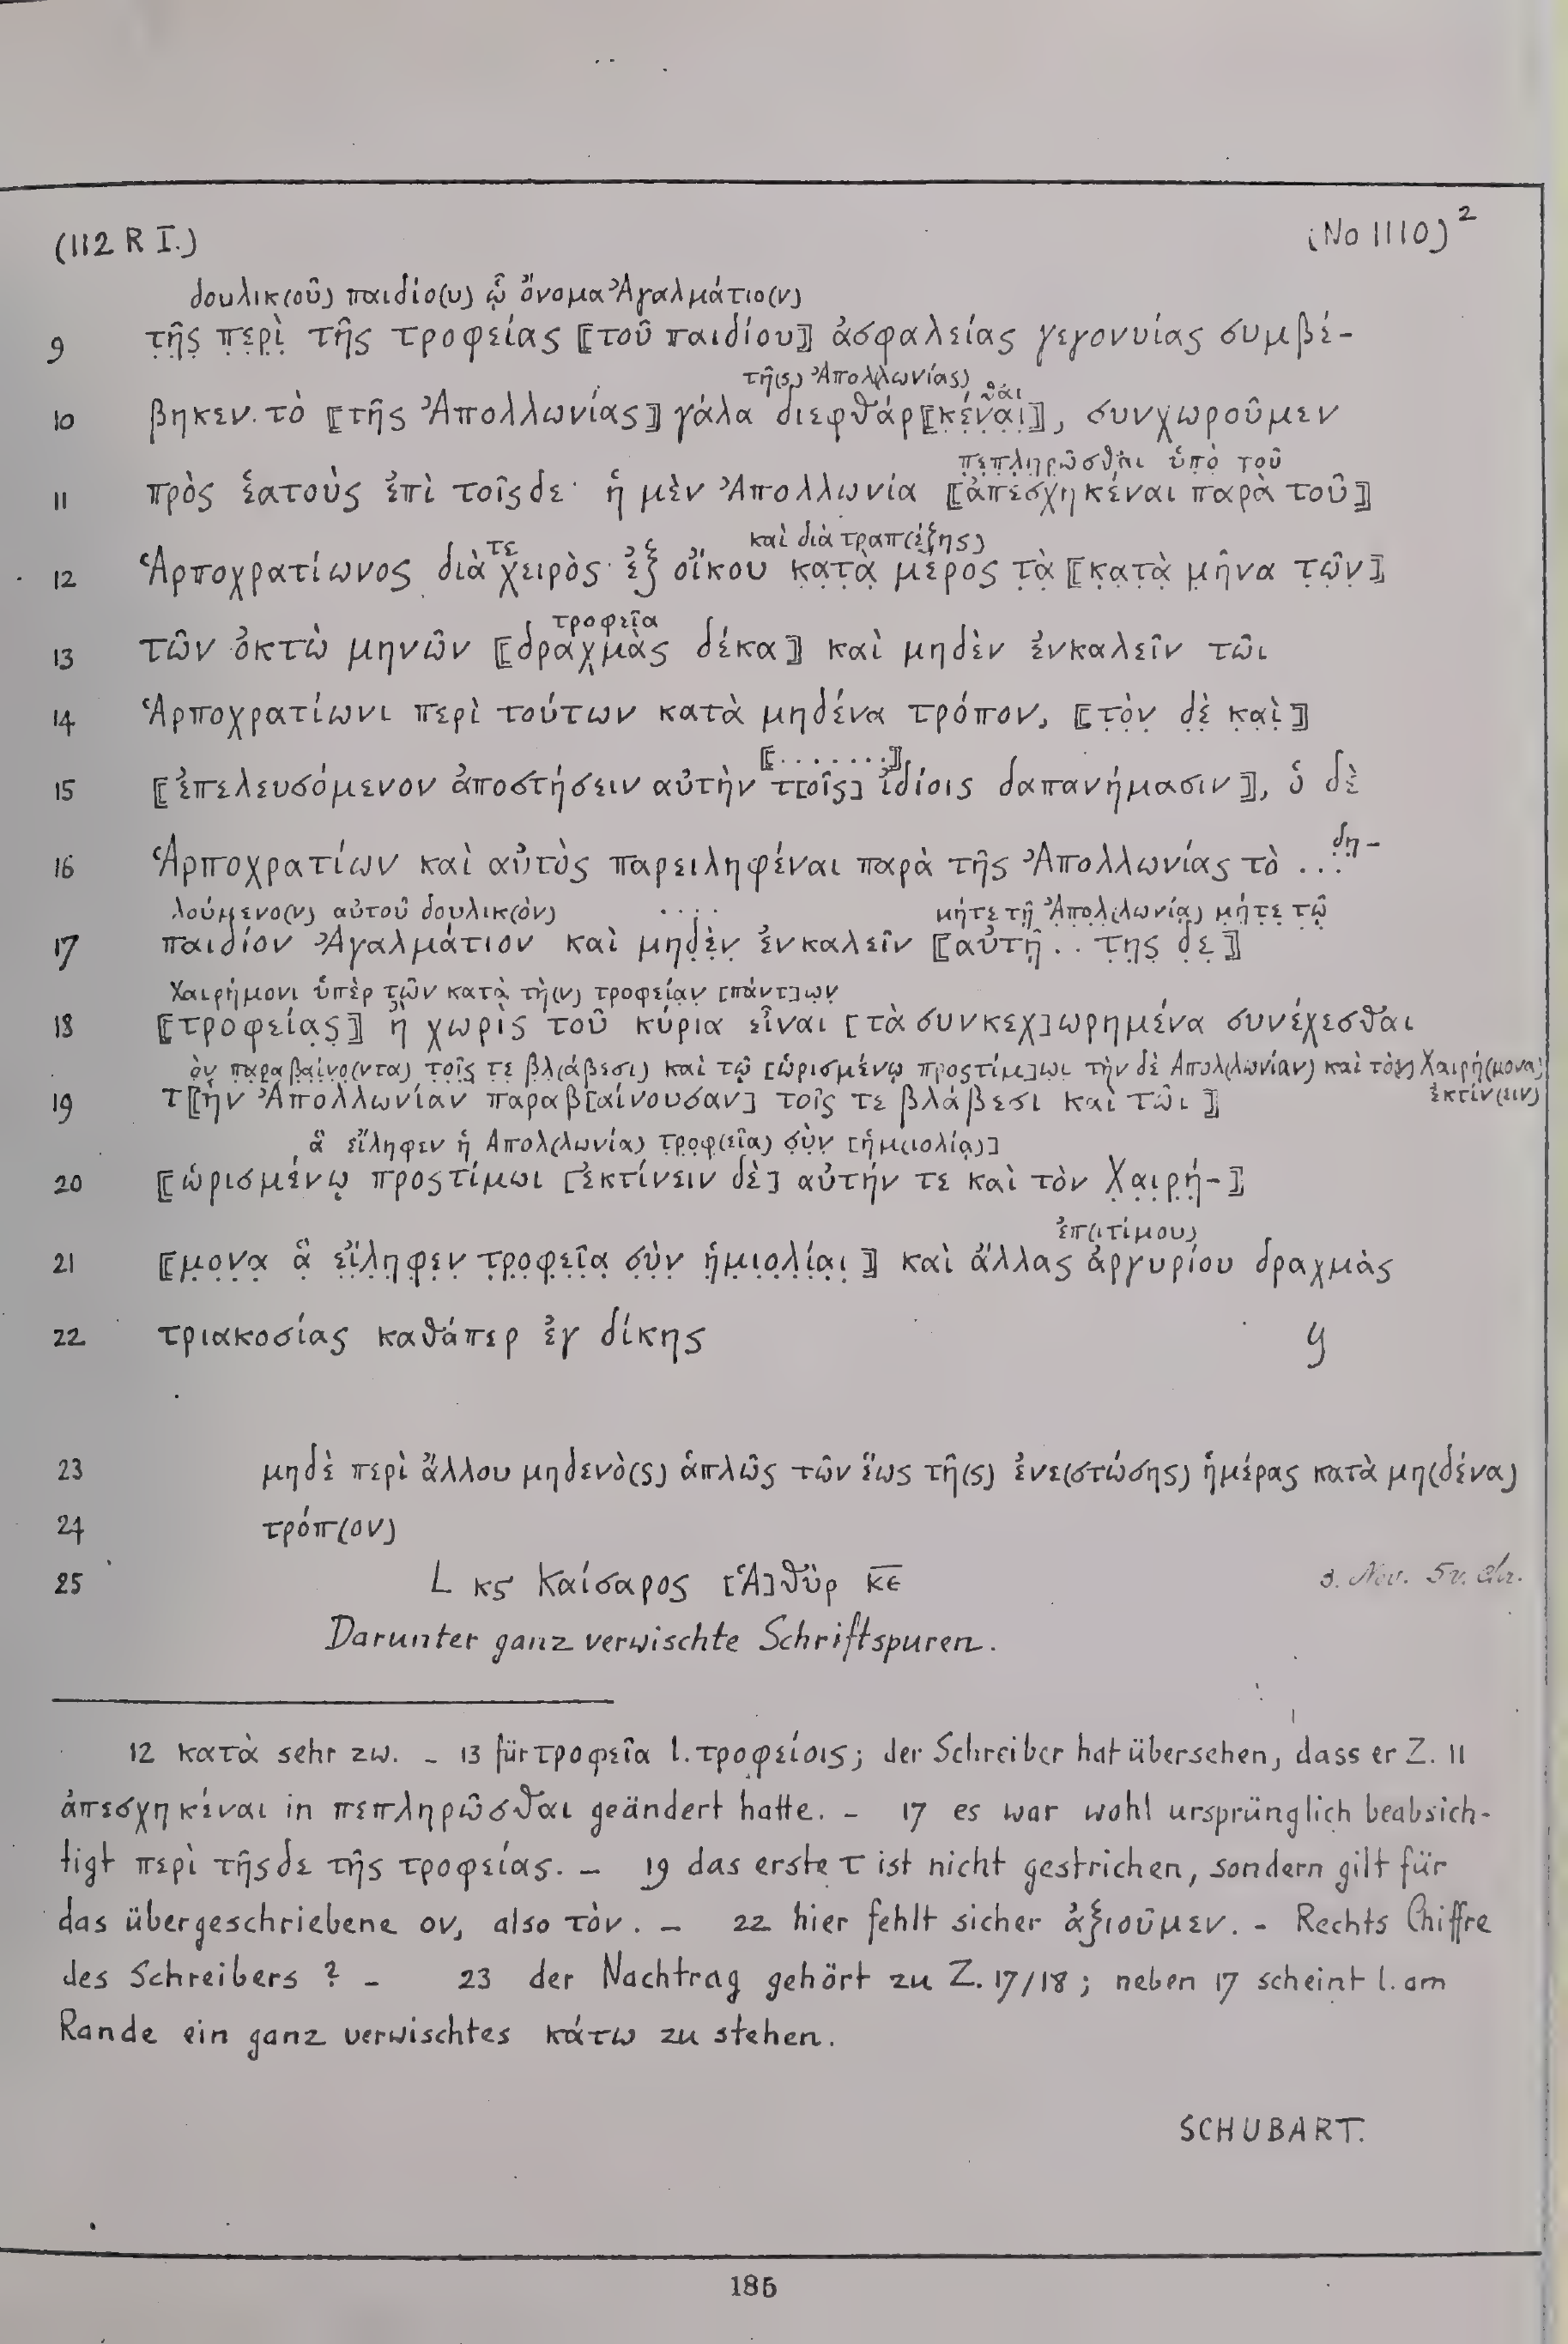 (112 R I.) (No 1110)²
δουλικ(οῦ) παιδίο(υ) ᾧ ὄνομα Ἀγαλμάτιο(ν)
9 τ̣ῆ̣ς̣ π̣ε̣ρ̣ὶ̣ τῆς τροφείας ⟦τοῦ παιδίου⟧ ἀσφαλείας γεγονυίας συμβέ-
τῆ(ς) Ἀπολλωνίας) θ̣αι
10 βηκεν. τὸ ⟦τῆς Ἀπολλωνίας⟧ γάλα διεφθάρ⟦κ̣έ̣ν̣α̣ι̣⟧, συνχωροῦμεν
π̣ε̣π̣λ̣η̣ρ̣ῶ̣σ̣θ̣α̣ι ὑπὸ τοῦ
11 πρὸς ἑατοὺς ἐπὶ τοῖςδε· ἡ μὲν Ἀπολλωνία ⟦ἀπεσχηκέναι παρὰ τοῦ⟧
τε καὶ διὰ τραπ(έζης)
12 Ἁρποχρατίωνος διὰ χειρὸς ἐξ οἴκου κ̣α̣τ̣ὰ̣ μέρος τὰ ⟦κ̣α̣τ̣ὰ̣ μῆνα τ̣ῶ̣ν̣⟧
τροφεῖα
13 τῶν ὀκτὼ μηνῶν ⟦δραχμὰς δέκα⟧ καὶ μηδὲν ἐνκαλεῖν τῶι
14 Ἁρποχρατίωνι περὶ τούτων κατὰ μηδένα τρόπον, ⟦τ̣ὸ̣ν̣ δ̣ὲ̣ κ̣α̣ὶ̣⟧
⟦.......⟧
15 ⟦ἐπελευσόμενον ἀποστήσειν αὐτὴν τ[οῖς] ἰδίοις δαπανήμασιν⟧, ὁ δὲ
δ̣η̣-
16 Ἁρποχρατίων καὶ αὐτὸς παρειληφέναι παρὰ τῆς Ἀπολλωνίας τὸ ...
λούμενο(ν) αὐτοῦ δουλικ(ὸν) .... μήτε τῇ Ἀπολ(λωνίᾳ) μήτε τῷ
17 παιδίον Ἀγαλμάτιον καὶ μηδ̣ὲ̣ν̣ ἐνκαλεῖν ⟦αὐτῇ .. τ̣η̣ς̣ δ̣ε̣⟧
Χαιρήμονι ὑπὲρ τῶν κατὰ τὴ(ν) τροφείαν [πάντ]ων
18 ⟦τροφείας⟧ ἢ χωρὶς τοῦ κύρια εἶναι [τὰ συνκεχ]ωρημένα συνέχεσθαι
ὸν παραβαίνο(ντα) τοῖς τε βλ(άβεσι) καὶ τῷ [ὡρισμένῳ προςτίμ]ωι τὴν δὲ Απολ(λωνίαν) καὶ τὸ(ν) Χαιρή(μονα)
19 τ⟦ὴν Ἀπολλωνίαν παραβ[αίνουσαν] τοῖς τε βλάβεσι καὶ τῶι⟧ ἐκτίν(ειν)
ἃ εἴληφεν ἡ Απολ(λωνία) τροφ(εῖα) σὺν [ἡμ(ιολίᾳ)]
20 ⟦ὡρισμένῳ προςτίμωι [ἐκτίνειν δὲ] αὐτήν τε καὶ τὸν Χ̣α̣ι̣ρ̣ή̣-⟧
ἐπ(ιτίμους)
21 ⟦μ̣ο̣ν̣α̣ ἃ̣ ε̣ἴ̣λ̣η̣φ̣ε̣ν̣ τ̣ρ̣ο̣φ̣ε̣ῖ̣α̣ σ̣ὺ̣ν̣ ἡ̣μ̣ι̣ο̣λ̣ί̣α̣ι̣⟧ καὶ ἄλλας ἀργυρίου δραχμὰς
22 τριακοσίας καθάπερ ἐγ δίκης
23 μηδὲ περὶ ἄλλου μηδενὸ(ς) ἁπλῶς τῶν ἕως τῆ(ς) ἐνε(στώσης) ἡμέρας κατὰ μη(δένα)
24 τρόπ(ον)
25 L κς Καίσαρος [Ἁ]θὺρ κ̅ε̅ 3. Nov. 5 v. Chr.
Darunter ganz verwischte Schriftspuren.
12 κατὰ sehr zw. – 13 für τροφεῖα l. τροφείοις; der Schreiber hat übersehen, dass er Z. 11
ἀπεσχηκέναι in πεπληρῶσθαι geändert hatte. – 17 es war wohl ursprünglich beabsich-
tigt περὶ τῆςδε τῆς τροφείας. – 19 das erste τ ist nicht gestrichen, sondern gilt für
das übergeschriebene ον, also τὸν. – 22 hier fehlt sicher ἀξιοῦμεν. – Rechts Chiffre
des Schreibers ? – 23 der Nachtrag gehört zu Z. 17/18; neben 17 scheint l. am
Rande ein ganz verwischtes κάτω zu stehen.
SCHUBART.
185